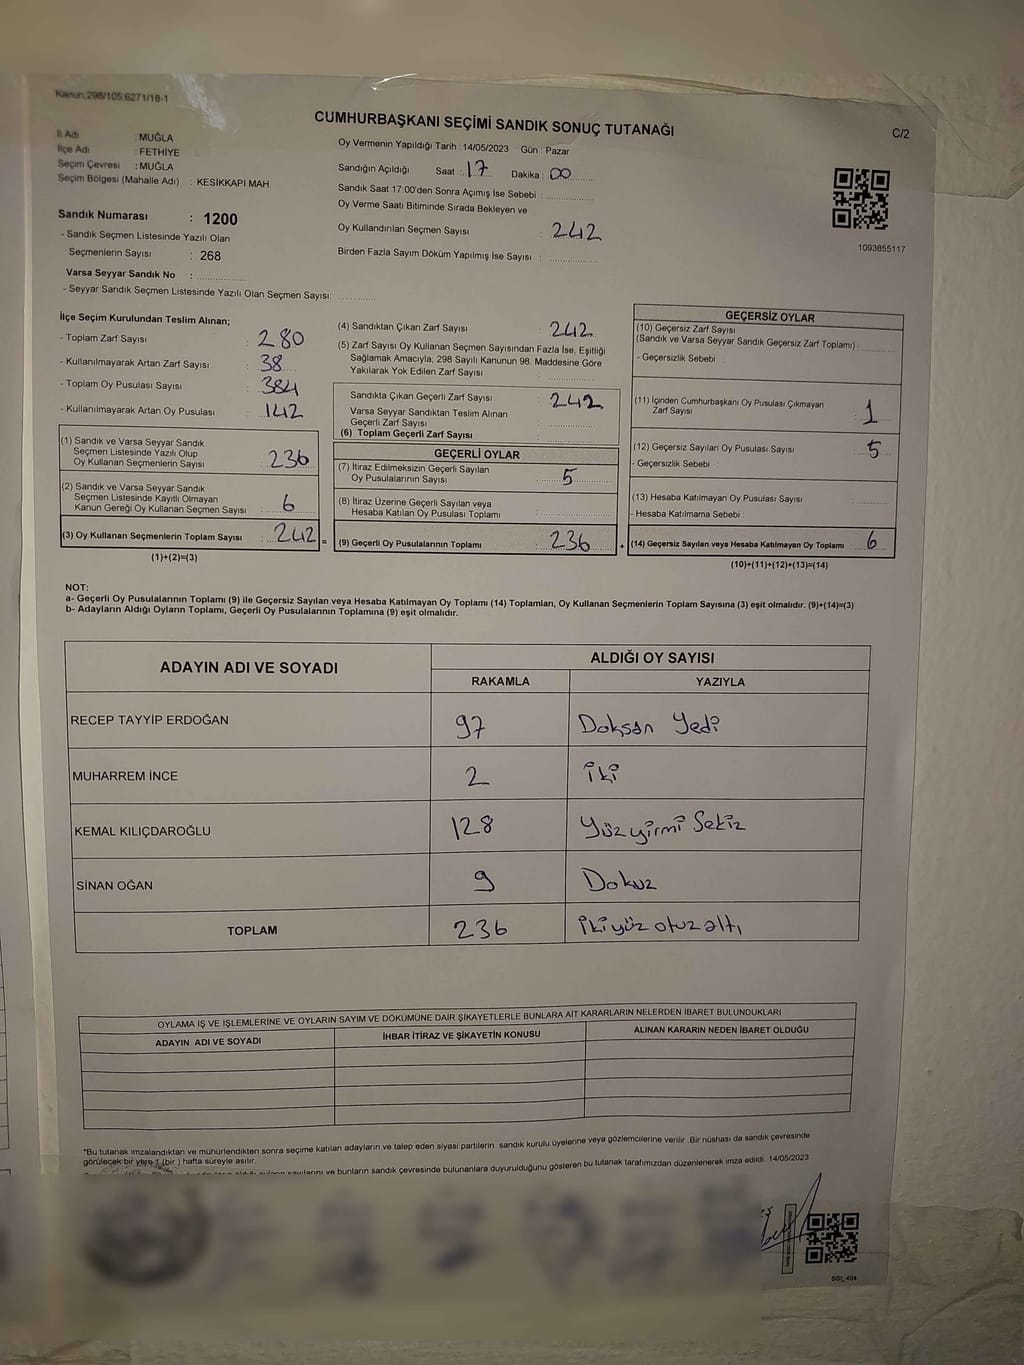 Kanun:298/105;6271/18-1
CUMHURBAŞKANI SEÇİMİ SANDIK SONUÇ TUTANAĞI
C/2
İl Adı : MUĞLA
İlçe Adı : FETHİYE
Seçim Çevresi : MUĞLA
Seçim Bölgesi (Mahalle Adı) : KESİKKAPI MAH.
Sandık Numarası : 1200
- Sandık Seçmen Listesinde Yazılı Olan
Seçmenlerin Sayısı : 268
Varsa Seyyar Sandık No :
- Seyyar Sandık Seçmen Listesinde Yazılı Olan Seçmen Sayısı:
Oy Vermenin Yapıldığı Tarih : 14/05/2023 Gün : Pazar
Sandığın Açıldığı Saat : 17 Dakika : 00
Sandık Saat 17:00'den Sonra Açılmış İse Sebebi :
Oy Verme Saati Bitiminde Sırada Bekleyen ve
Oy Kullandırılan Seçmen Sayısı : 242
Birden Fazla Sayım Döküm Yapılmış İse Sayısı :
1093855117
İlçe Seçim Kurulundan Teslim Alınan;
- Toplam Zarf Sayısı : 280
- Kullanılmayarak Artan Zarf Sayısı : 38
- Toplam Oy Pusulası Sayısı : 384
- Kullanılmayarak Artan Oy Pusulası : 142
(1) Sandık ve Varsa Seyyar Sandık
Seçmen Listesinde Yazılı Olup
Oy Kullanan Seçmenlerin Sayısı : 236
(2) Sandık ve Varsa Seyyar Sandık
Seçmen Listesinde Kayıtlı Olmayan
Kanun Gereği Oy Kullanan Seçmen Sayısı : 6
(3) Oy Kullanan Seçmenlerin Toplam Sayısı : 242 =
(1)+(2)=(3)
(4) Sandıktan Çıkan Zarf Sayısı : 242
(5) Zarf Sayısı Oy Kullanan Seçmen Sayısından Fazla İse, Eşitliği
Sağlamak Amacıyla; 298 Sayılı Kanunun 98. Maddesine Göre
Yakılarak Yok Edilen Zarf Sayısı :
Sandıkta Çıkan Geçerli Zarf Sayısı : 242
Varsa Seyyar Sandıktan Teslim Alınan
Geçerli Zarf Sayısı :
(6) Toplam Geçerli Zarf Sayısı :
GEÇERLİ OYLAR
(7) İtiraz Edilmeksizin Geçerli Sayılan
Oy Pusulalarının Sayısı : 5
(8) İtiraz Üzerine Geçerli Sayılan veya
Hesaba Katılan Oy Pusulası Toplamı :
(9) Geçerli Oy Pusulalarının Toplamı : 236 +
GEÇERSİZ OYLAR
(10) Geçersiz Zarf Sayısı
(Sandık ve Varsa Seyyar Sandık Geçersiz Zarf Toplamı) :
- Geçersizlik Sebebi :
(11) İçinden Cumhurbaşkanı Oy Pusulası Çıkmayan
Zarf Sayısı : 1
(12) Geçersiz Sayılan Oy Pusulası Sayısı : 5
- Geçersizlik Sebebi :
(13) Hesaba Katılmayan Oy Pusulası Sayısı :
- Hesaba Katılmama Sebebi :
(14) Geçersiz Sayılan veya Hesaba Katılmayan Oy Toplamı : 6
(10)+(11)+(12)+(13)=(14)
NOT:
a- Geçerli Oy Pusulalarının Toplamı (9) ile Geçersiz Sayılan veya Hesaba Katılmayan Oy Toplamı (14) Toplamları, Oy Kullanan Seçmenlerin Toplam Sayısına (3) eşit olmalıdır. (9)+(14)=(3)
b- Adayların Aldığı Oyların Toplamı, Geçerli Oy Pusulalarının Toplamına (9) eşit olmalıdır.
ADAYIN ADI VE SOYADI
ALDIĞI OY SAYISI
RAKAMLA YAZIYLA
RECEP TAYYİP ERDOĞAN 97 Doksan Yedi
MUHARREM İNCE 2 iki
KEMAL KILIÇDAROĞLU 128 Yüz yirmi Sekiz
SİNAN OĞAN 9 Dokuz
TOPLAM 236 iki yüz otuz altı
OYLAMA İŞ VE İŞLEMLERİNE VE OYLARIN SAYIM VE DÖKÜMÜNE DAİR ŞİKAYETLERLE BUNLARA AİT KARARLARIN NELERDEN İBARET BULUNDUKLARI
ADAYIN ADI VE SOYADI İHBAR İTİRAZ VE ŞİKAYETİN KONUSU ALINAN KARARIN NEDEN İBARET OLDUĞU
*Bu tutanak imzalandıktan ve mühürlendikten sonra seçime katılan adayların ve talep eden siyasi partilerin sandık kurulu üyelerine veya gözlemcilerine verilir. Bir nüshası da sandık çevresinde
görülecek bir yere 1 (bir ) hafta süreyle asılır.
sayılarını ve bunların sandık çevresinde bulunanlara duyurulduğunu gösteren bu tutanak tarafımızdan düzenlenerek imza edildi. 14/05/2023
SSİ_404